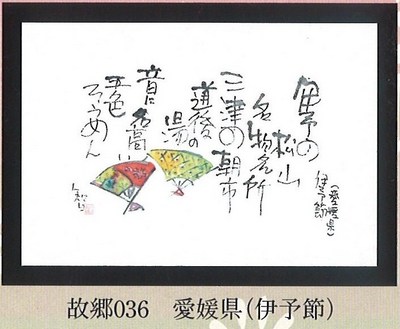 (愛媛県)
伊予節
伊予の
松山
名物名所
三津の朝市
道後の
湯
音に名高い
五色
そうめん
故郷036 愛媛県(伊予節)